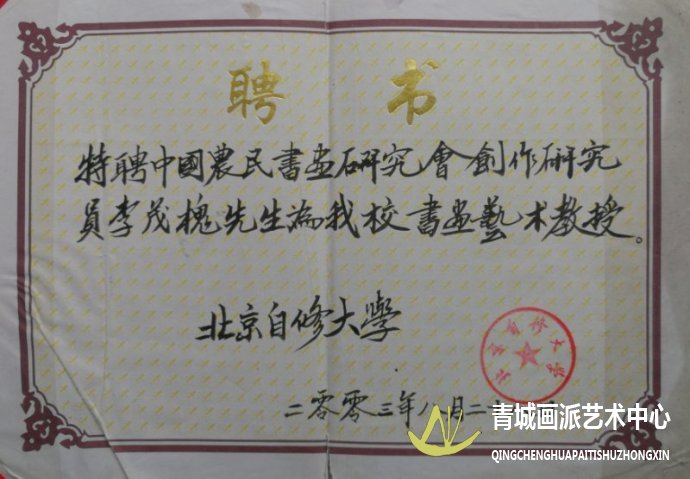 聘 书
特聘中國農民書画研究會創作研究
員李茂槐先生為我校書画藝术教授。
北京自修大學
北京自修大学
二零零三年八月二
青城画派艺术中心
QINGCHENGHUAPAITISHUZHONGXIN